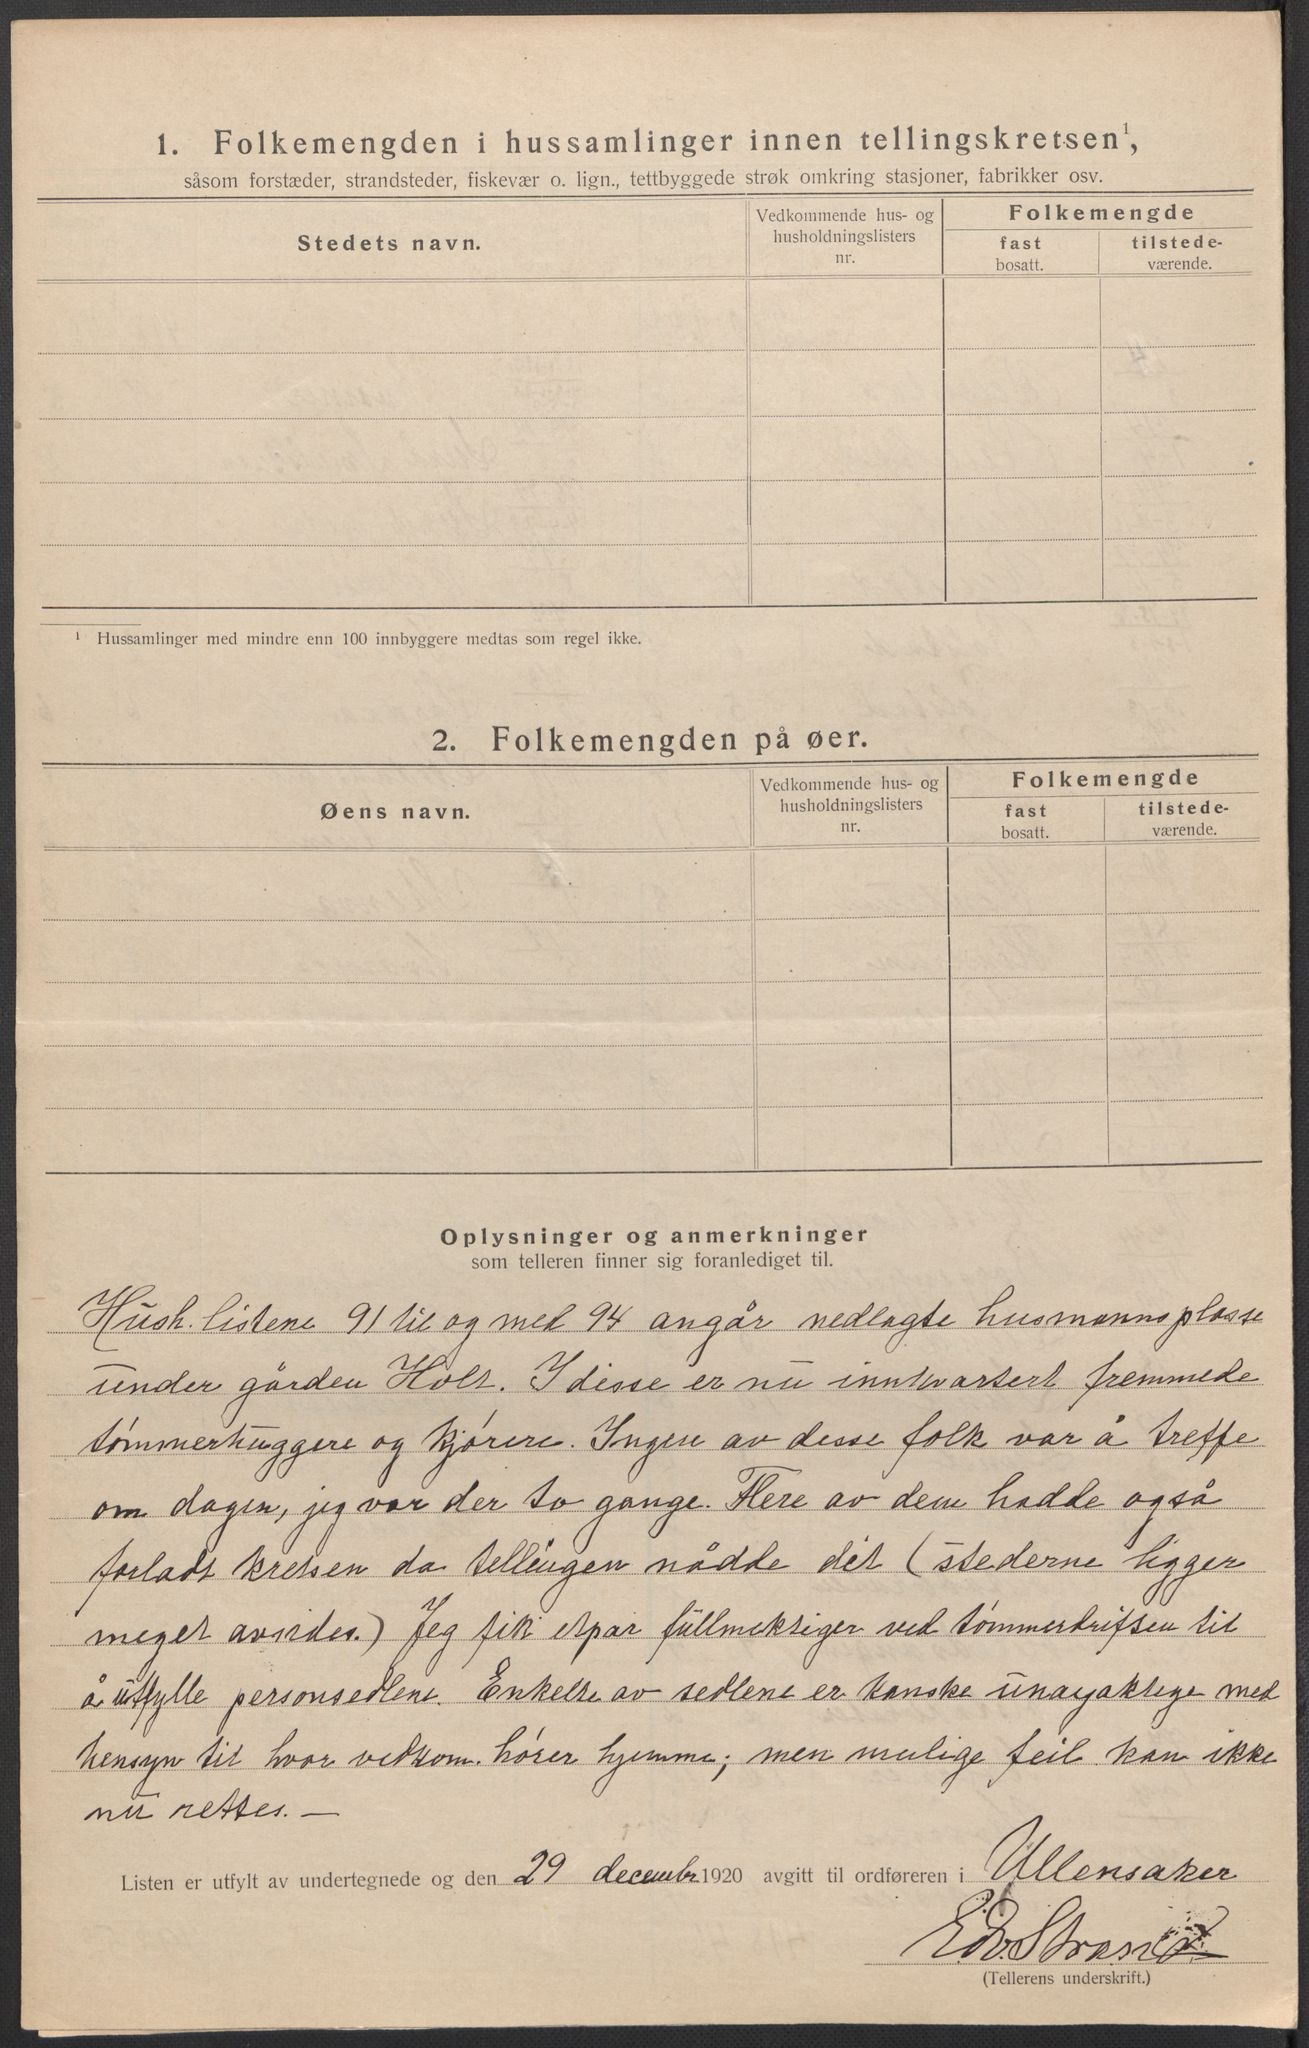 1. Folkemengden i hussamlinger innen tellingskretsen¹,
såsom forstæder, strandsteder, fiskevær o. lign., tettbyggede strøk omkring stasjoner, fabrikker osv.
Stedets navn.
Vedkommende hus- og
husholdningslisters
nr.
Folkemengde
fast
bosatt.
tilstede-
værende.
¹ Hussamlinger med mindre enn 100 innbyggere medtas som regel ikke.
2. Folkemengden på øer.
Øens navn.
Vedkommende hus- og
husholdningslisters
nr.
Folkemengde
fast
bosatt.
tilstede-
værende.
Oplysninger og anmerkninger
som telleren finner sig foranlediget til.
Hush. listene 91 til og med 94 angår nedlagte husmannsplasse
under gården Holt. I disse er nu innkvartert fremmede
tømmerhuggere og kjørere. Ingen av desse folk var å treffe
om dagen, jeg var der to gange. Flere av dem hadde også
forladt kretsen da tellingen nådde dit (stederne ligger
meget avsides.) Jeg fik etpar fullmektiger ved tømmerdriften til
å utfylle personsedlene. Enkelte av sedlene er kanske unøyaktige med
hensyn til hvor vedkom. hører hjemme; men mulige feil kan ikke
nu rettes. —
Listen er utfylt av undertegnede og den 29 decembr 1920 avgitt til ordføreren i Ullensaker
Edv.
(Tellerens underskrift.)